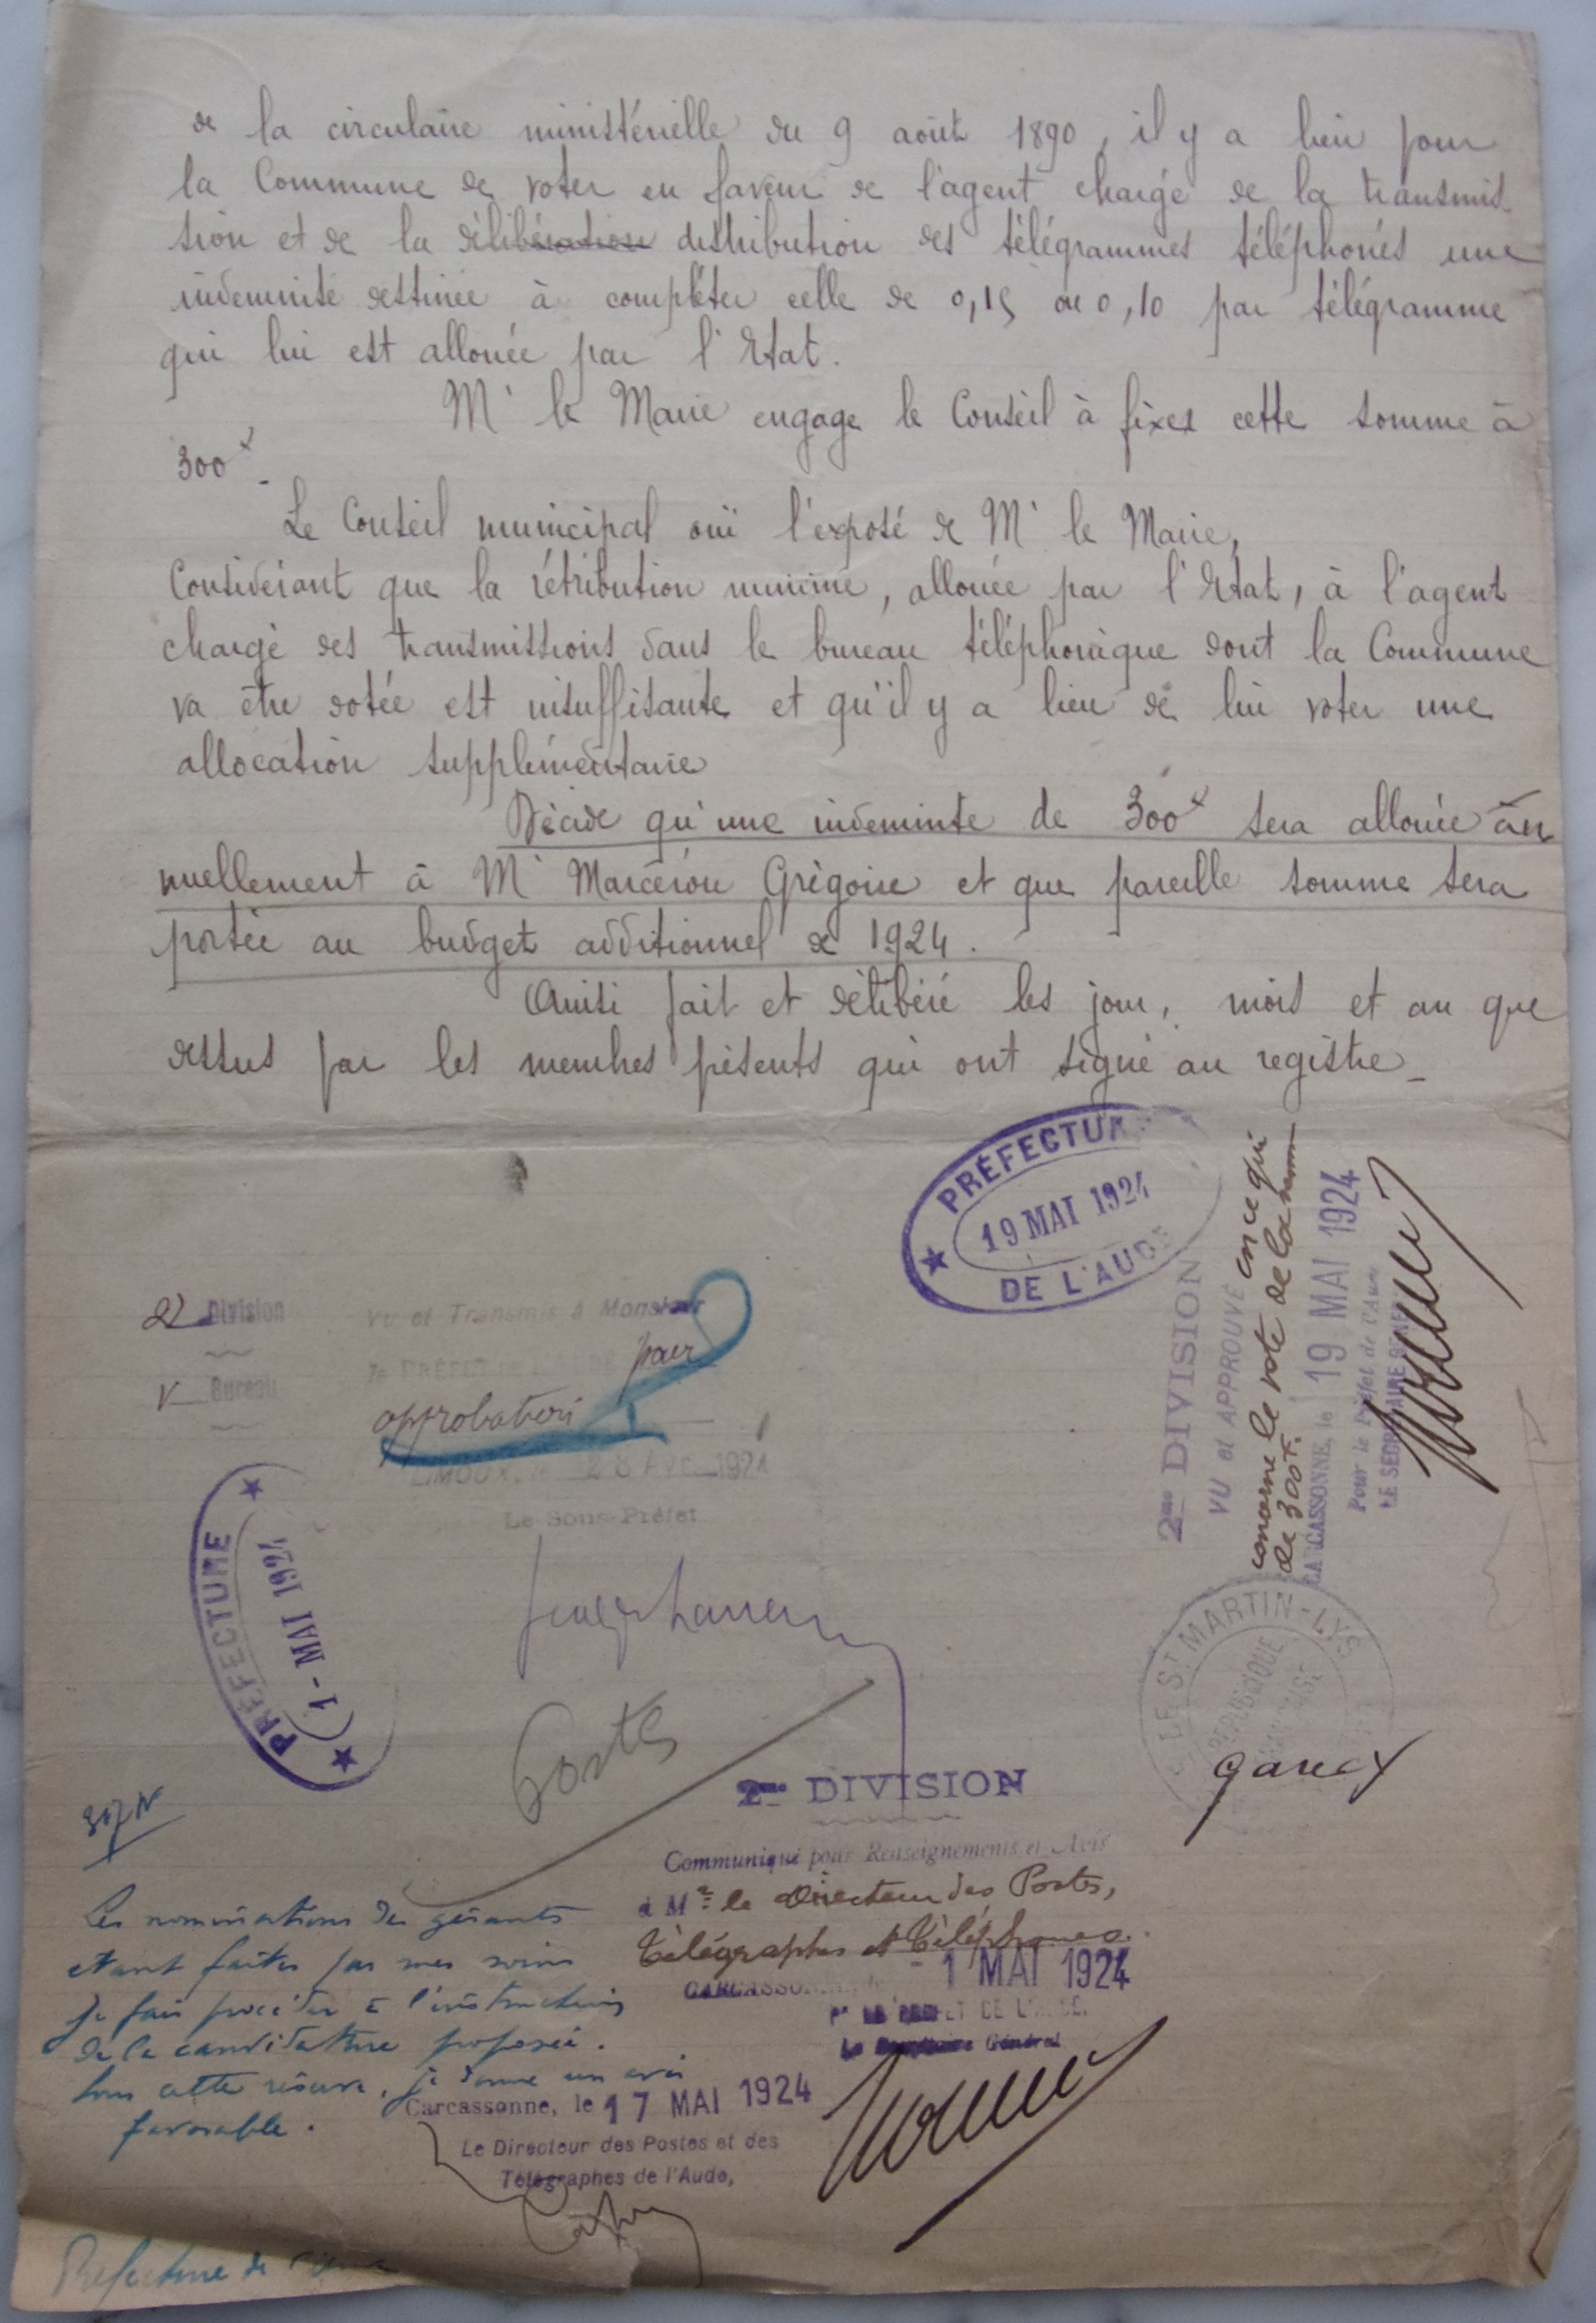 de la circulaire ministérielle du 9 août 1890, il y a lieu pour
la Commune de voter en faveur de l'agent chargé de la transmis-
sion et de la délibération distribution des télégrammes téléphonés une
indemnité destinée à compléter celle de 0,15 ou 0,10 par télégramme
qui lui est allouée par l'Etat.
Mr le Maire engage le Conseil à fixer cette somme à
300f -
Le Conseil municipal ouï l'exposé de Mr le Maire,
Considérant que la rétribution minime, allouée par l'Etat, à l'agent
chargé des transmissions dans le bureau téléphonique dont la Commune
va être dotée est insuffisante et qu'il y a lieu de lui voter une
allocation supplémentaire
Décide qu'une indemnité de 300f sera allouée an
nuellement à Mr Marcerou Grégoire et que pareille somme sera
portée au budget additionnel de 1924.
Ainsi fait et délibéré les jour, mois et an que
dessus par les membres présents qui ont signé au registre -
PRÉFECTURE
19 MAI 1924
DE L'AUDE
2me DIVISION
VU et APPROUVÉ en ce qui
concerne le vote de la somme
de 300f.
CARCASSONNE, le 19 MAI 1924
Pour le Préfet de l'Aude
LE SECRÉTAIRE GÉNÉRAL
2e Division
Bureau
Vu et Transmis à Monsieur
le PRÉFET DE L'AUDE pour
approbation
LIMOUX, le 28 AVR 1924
Le Sous-Préfet
PRÉFECTURE
1 - MAI 1924
ST MARTIN-LYS
RÉPUBLIQUE
FRANÇAISE
Postes
2me DIVISION
Communiqué pour Renseignements et Avis
à Mr le Directeur des Postes,
Télégraphes et Téléphones.
CARCASSONNE, le - 1 MAI 1924
Pr LE PRÉFET DE L'AUDE,
Le Secrétaire Général
Les nominations des gérants
étant faites par mes soins
je fais procéder à l'instruction
de la candidature proposée.
Sous cette réserve, je donne un avis
favorable.
Carcassonne, le 17 MAI 1924
Le Directeur des Postes et des
Télégraphes de l'Aude,
Préfecture de l'Aude